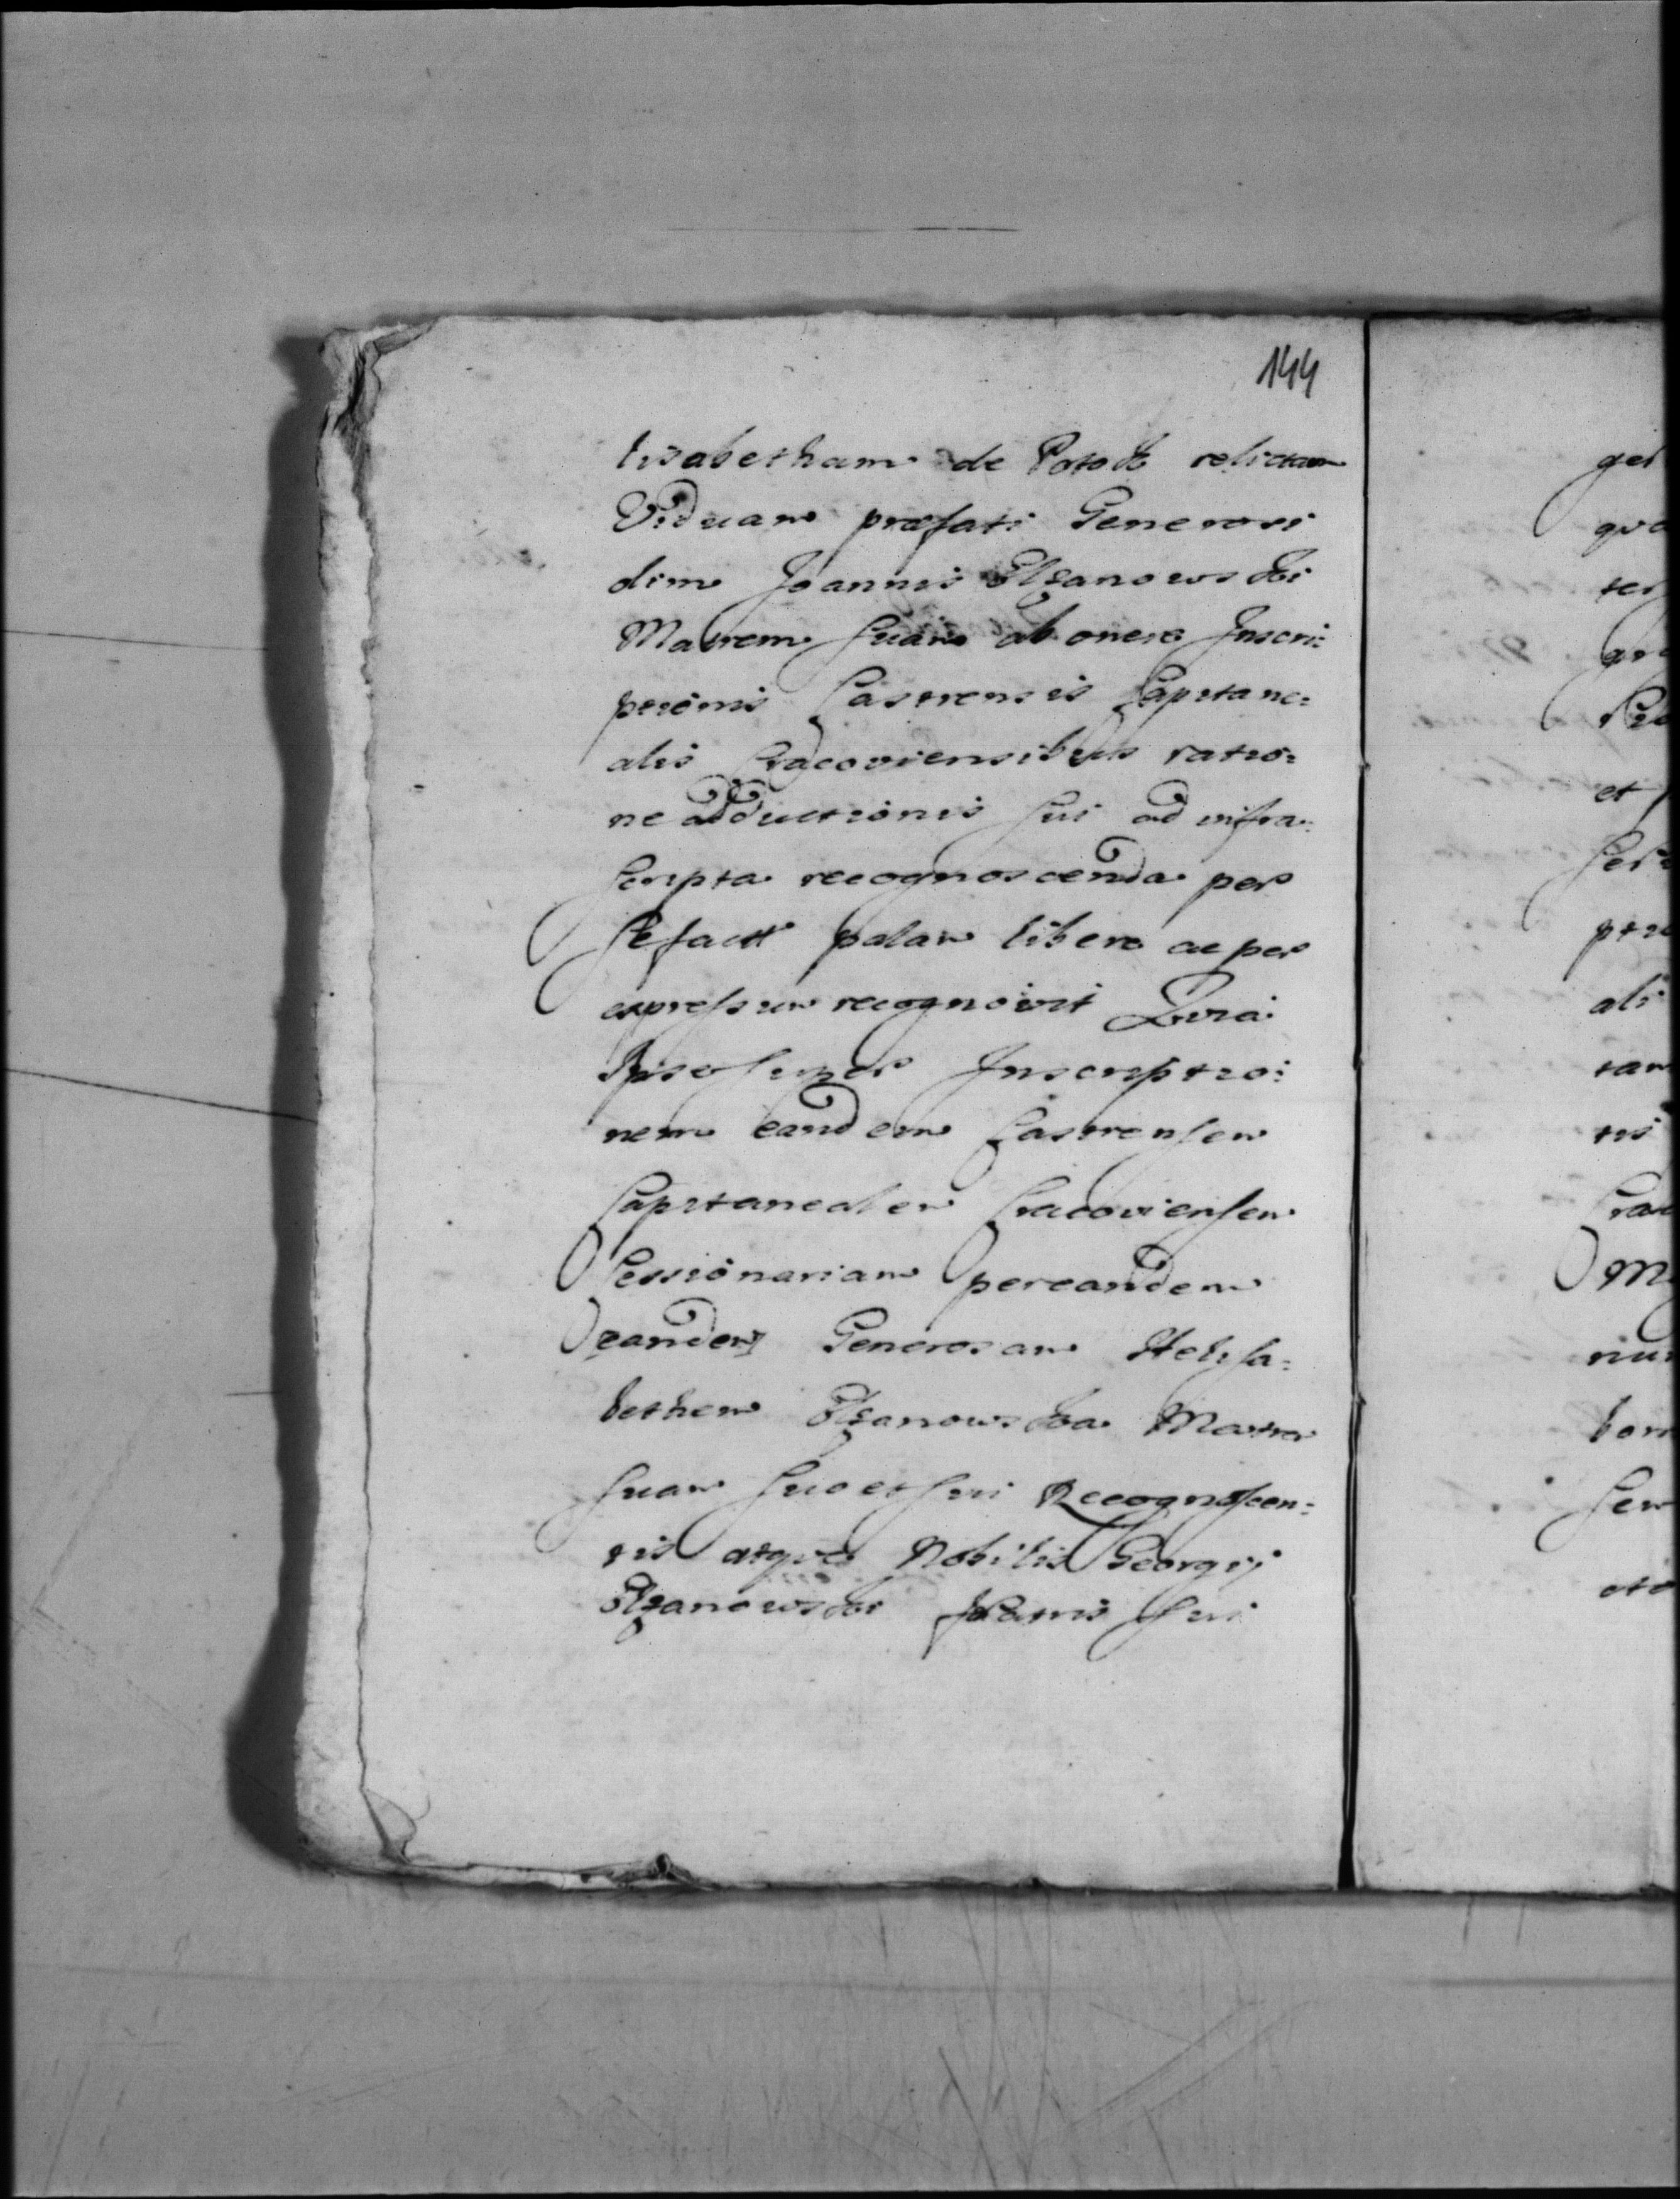 144
lisabetham de Potok relictam
Viduam præfati Generosi
olim Joannis Olzanowski
Matrem Suam ab onere Inscri:
ptionis Castrensis Capitane:
alis Cracoviensibus ratio:
ne adductionis Sui ad infra:
Scripta recognoscenda per
Se fact palam libere ac per
expressum recognovit Quia
Ipse Super Inscriptio:
nem eandem Castrensem
Capitanealem Cracoviensem
Cessionariam per eandem
eandem Generosam Helisa:
bethem Olzanowska Matre
Suam Suo et Sui Recognoscen:
tis atque Nobilis Georgij
Olzanowski Fratris Sui
gel
qvo
ter
gra
et
Ser
ptio
ali
tam
tis
Crac
M
niu
bon
Sem